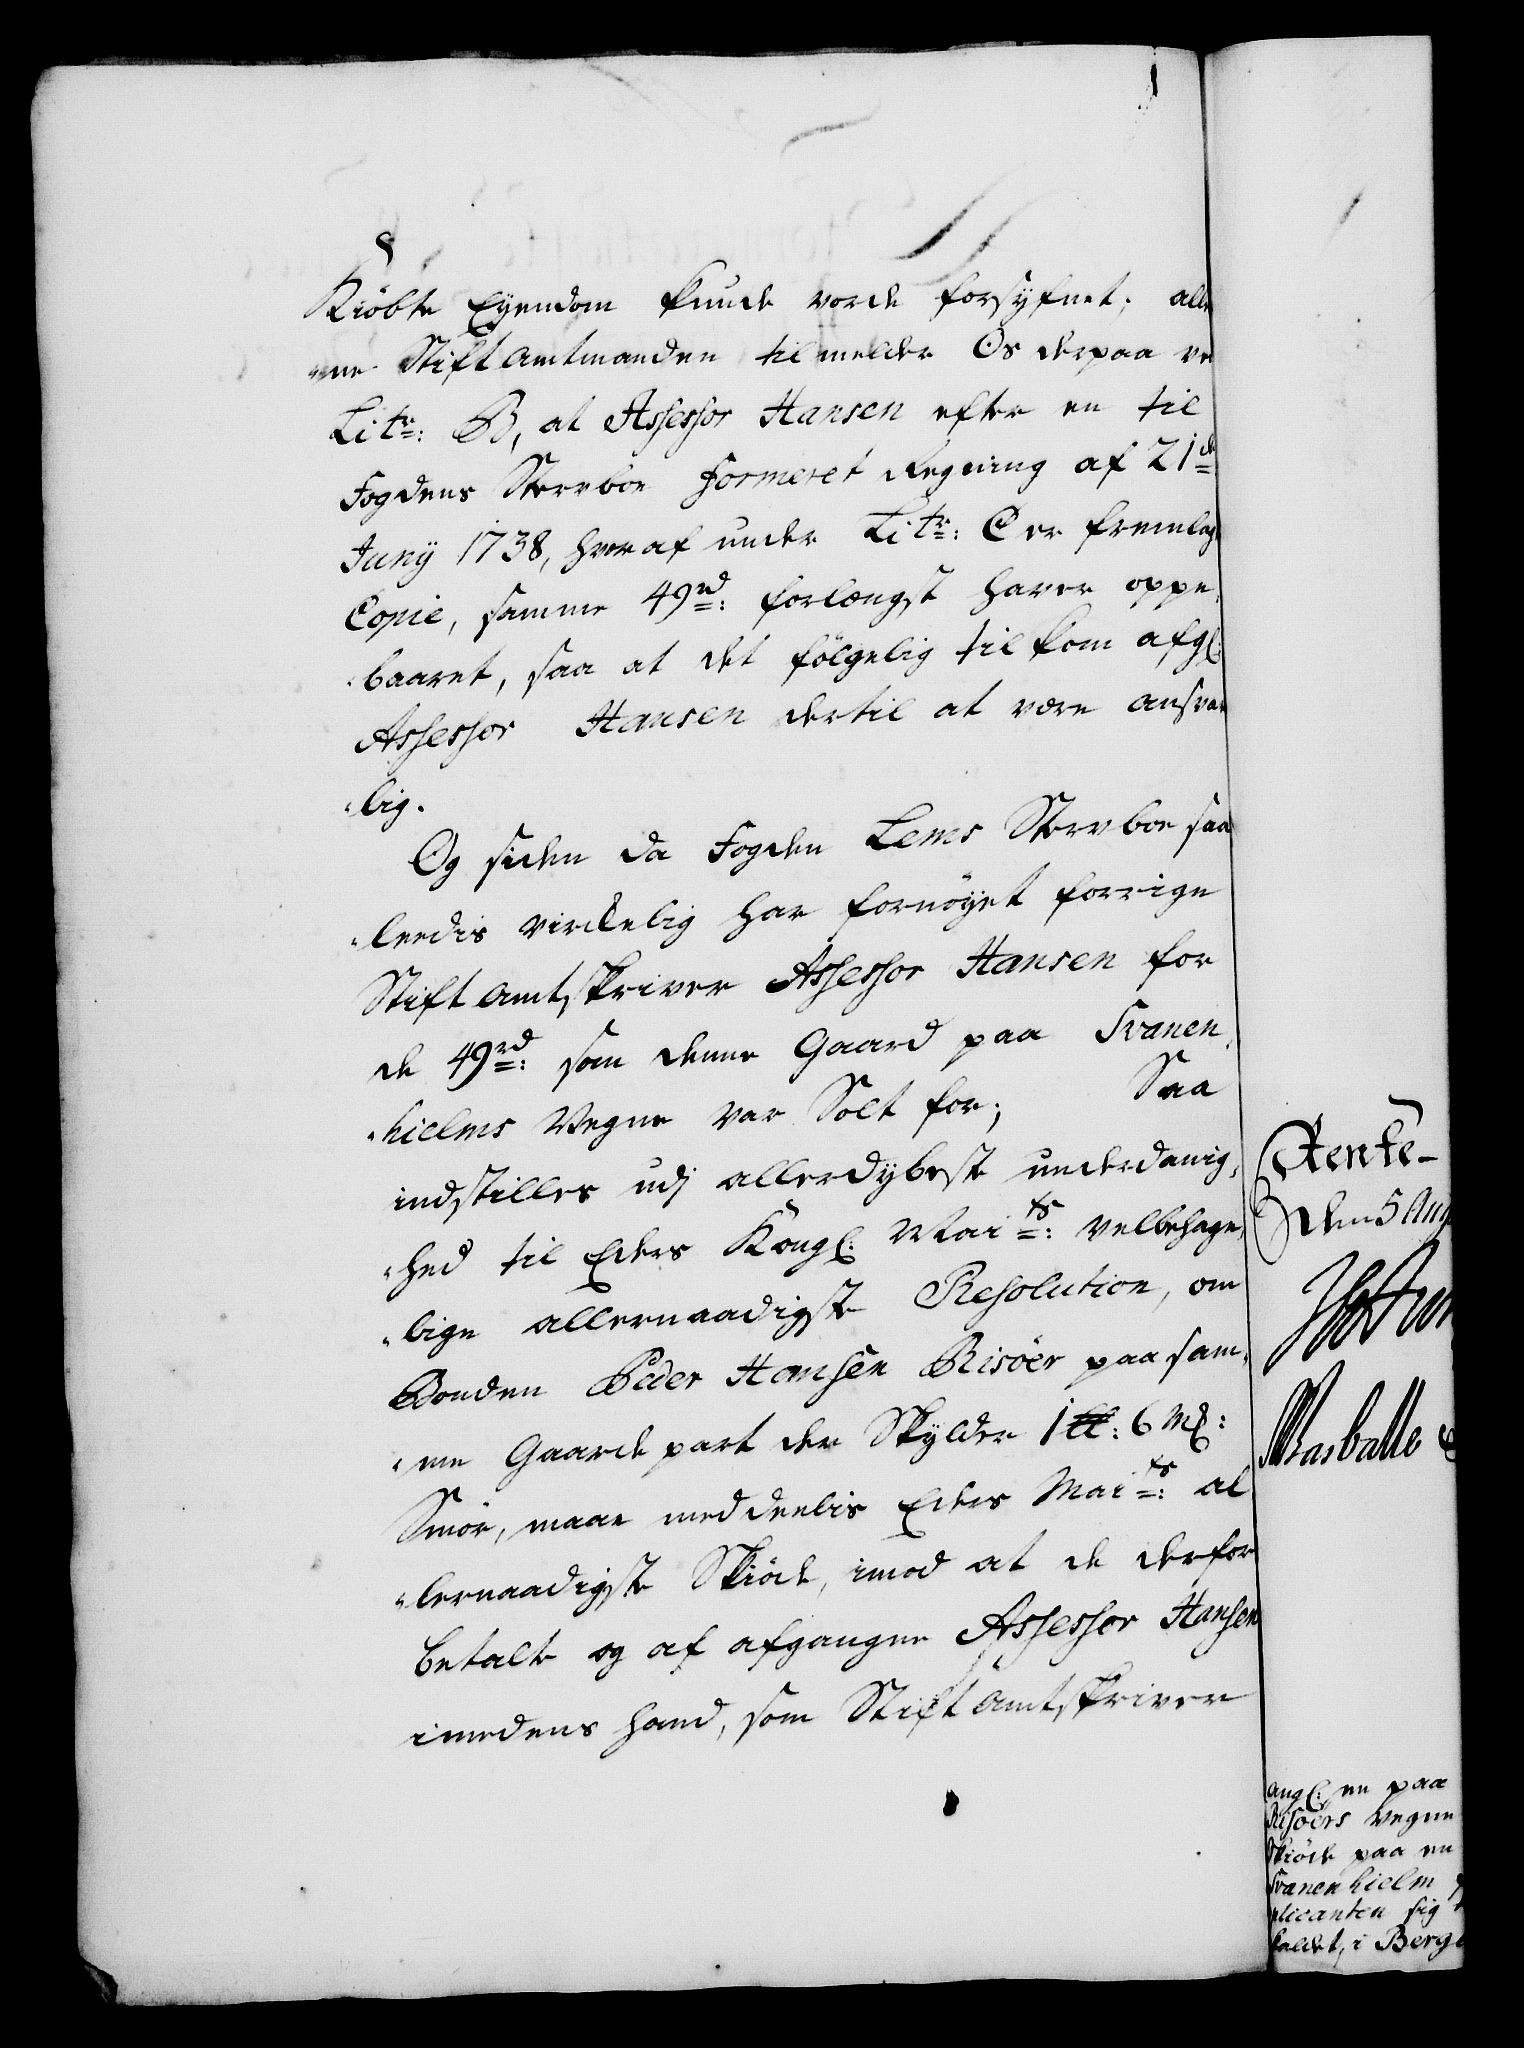 Kiöbte Eyendom kunde vorde forsÿfnet; alle
ne Stiftamtmanden tilmelder Os derpaa ve
Litr: B, at Assessor Hansen efter en til
Fogdens Stervboe formeret Regning af 21de
Junÿ 1738, hvoraf under Litr: C er fremlag
Copie, samme 49rd: forlængst haver oppe,
baaret, saa at det fölgelig tilkom afgl:
Assessor Hansen dertil at være ansvar
lig.
Og siden da Fogden Lems Stervboe saa
leedis virkelig har fornöyet forrige
Stiftamtskriver Assessor Hansen for
de 49rd: som denne Gaard paa Svanen,
hielms Vegne var Solt for; Saa
indstilles udj allerdybeste underdanig,
hed til Eders Kongl: Maits: velbehage,
lige allernaadigste Resolution, om
Bonden Peder Hansen Risöer paa sam,
me Gaarde part der Skylder 1 lb: 6 Mk:
Smör, maae meddeelis Eders Maits: al
lernaadigste Skiöde, imod at de derfor
betalte og af afgangne Assessor Hansen
imedens hand, som Stiftamtskriver
Rente-
den 5 Aug
Rasballe
angl: en paa
Risöers Vegne
Skiöde paa en
Svanenhielm
plicanten sig
kaldet, i Berge